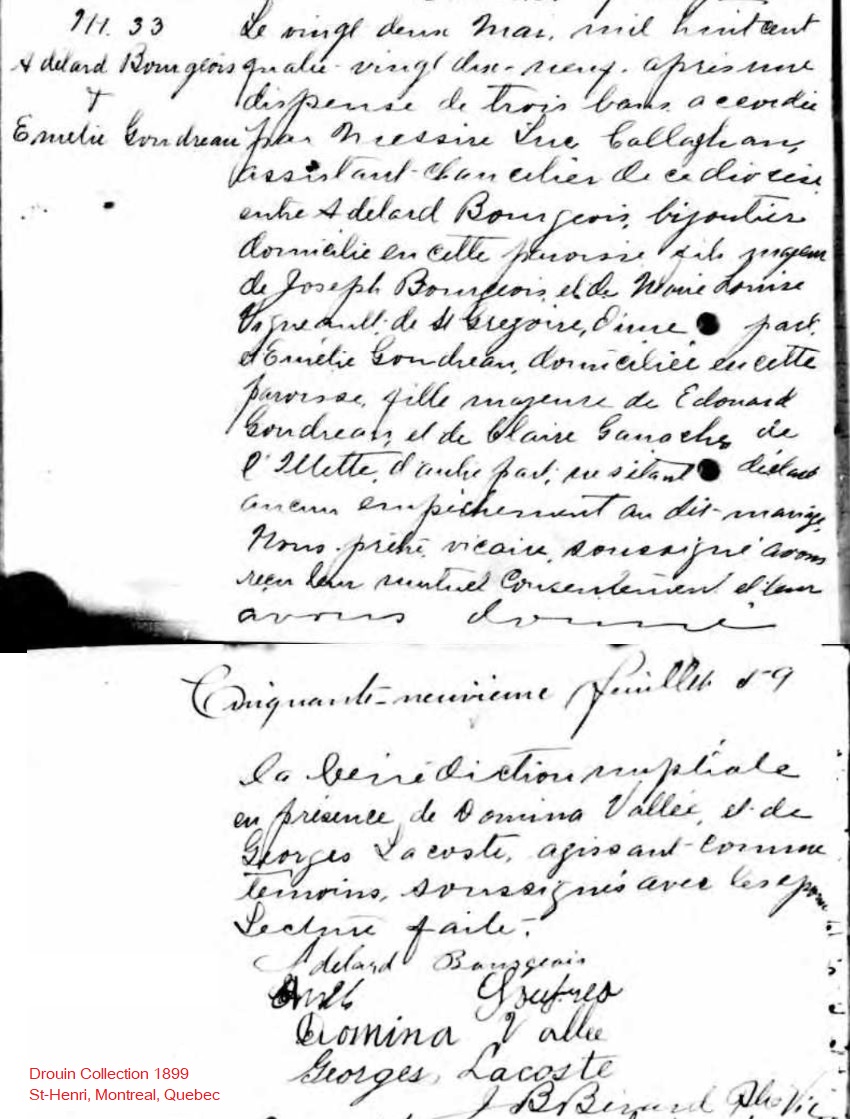 M. 33
Adelard Bourgeois
&
Emélie Goudreau
Le vingt deux Mai, mil huit cent
quatre-vingt dix-neuf, après une
dispense de trois bans accordée
par Messire Luc Callaghan,
assistant-chancelier de ce diocèse,
entre Adelard Bourgeois, bijoutier
domicilié en cette paroisse fils majeur
de Joseph Bourgeois, et de Marie Louise
Vigneault, de St Grégoire, d'une part,
et Emélie Goudreau, domiciliée en cette
paroisse, fille majeure de Edouard
Goudreau, et de Claire Ganache, de
d'autre part, ne s'étant déclaré
aucun empêchement au dit mariage,
Nous, prêtre, vicaire, soussigné avons
reçu leur mutuel consentement et leur
avons donné
Cinquante-neuvième feuillet 59
la bénédiction nuptiale
en présence de Domina Vallée, et de
Georges Lacoste, agissant comme
témoins, soussignés avec les époux
Lecture faite.
Adelard Bourgeois
Domina Vallee
Georges Lacoste
J B Bérard Ptre Vic
Drouin Collection 1899
St-Henri, Montreal, Quebec